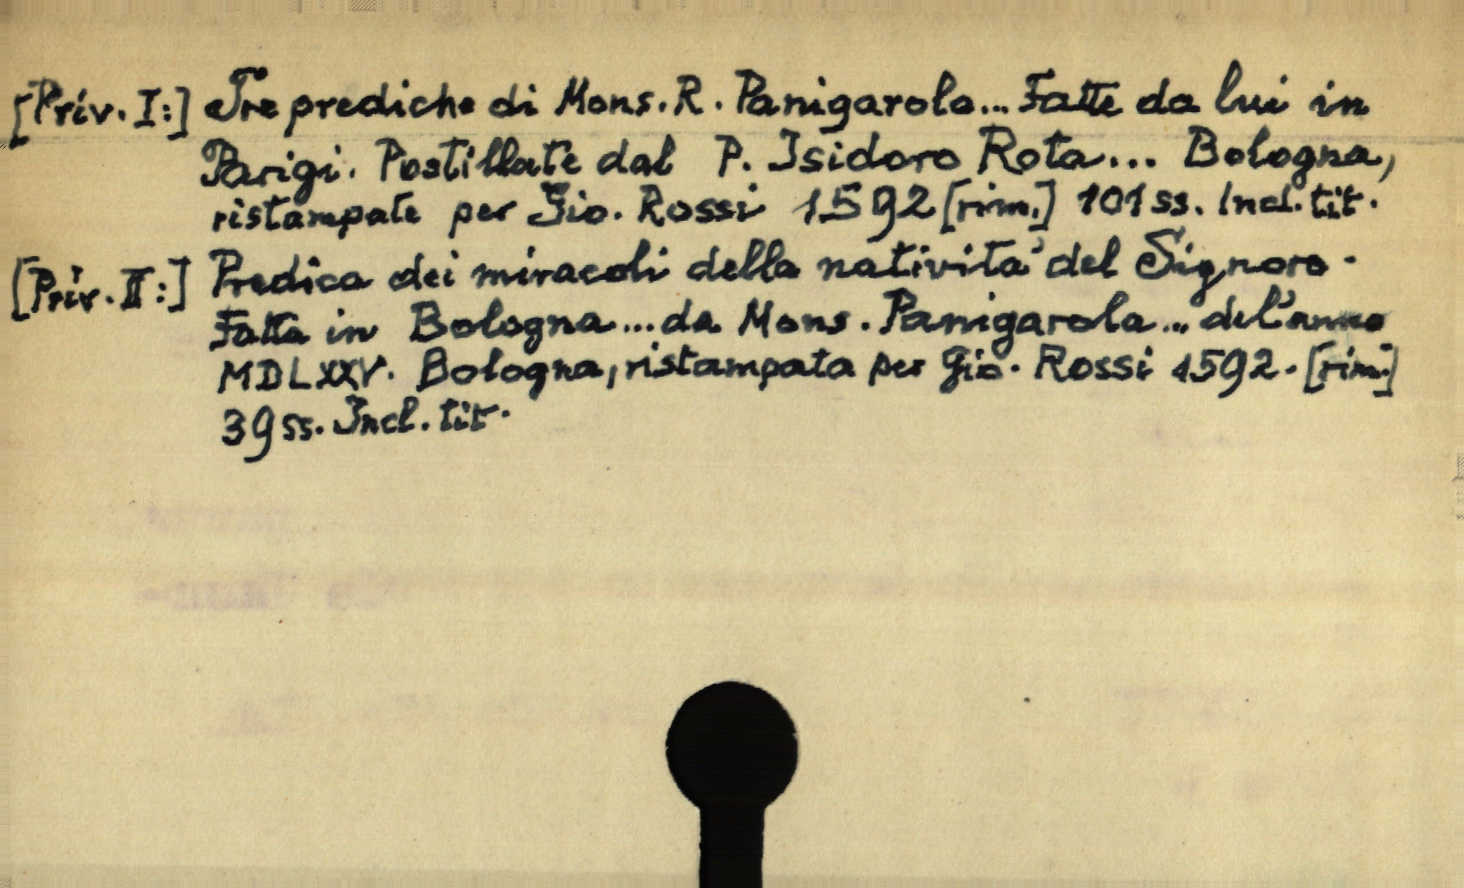 [Priv. I:] Tre prediche di Mons. R. Panigarola... Fatte da lui in
Parigi. Postillate dal P. Isidoro Rota... Bologna,
ristampate per Gio. Rossi 1592 [rim.] 101 ss. Incl. tit.
[Priv. II:] Predica dei miracoli della natività del Signore.
Fatta in Bologna... da Mons. Panigarola... del'anno
MDLXXV. Bologna, ristampata per Gio. Rossi 1592. [rim.]
39 ss. Incl. tit.